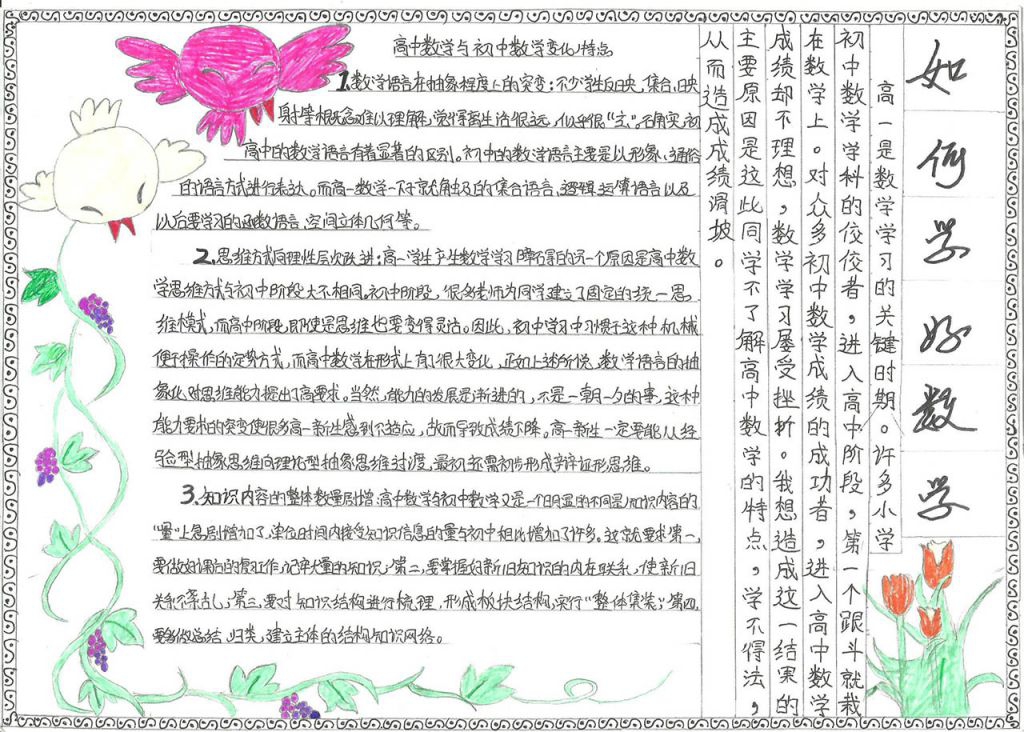 如何学好数学
高一是数学学习的关键时期。许多小学
初中数学学科的佼佼者，进入高中阶段，第一个跟斗就栽
在数学上。对众多初中数学成绩的成功者，进入高中数学
成绩却不理想，数学学习屡受挫折。我想造成这一结果的
主要原因是这此同学不了解高中数学的特点，学不得法，
从而造成成绩滑坡。
高中数学与初中数学变化特点
1.数学语言在抽象程度上的突变：不少学生反映，集合、映
射等概念难以理解，觉得离生活很远，似乎很“玄”。确实，初
高中的数学语言有着显著的区别。初中的数学语言主要是以形象、通俗
的语言方式进行表达。而高一数学一下子就触及的集合语言，逻辑运算语言以及
以后要学习的函数语言、空间立体几何等。
2.思维方式向理性层次跃进：高一学生产生数学学习障碍的另一个原因是高中数
学思维方式与初中阶段大不相同。初中阶段，很多老师为同学建立了固定的统一思
维模式，而高中阶段，即使是思维也要变得灵活。因此，初中学习中习惯于这种机械
便于操作的定势方式，而高中数学在形式上有了很大变化，正如上述所说，数学语言的抽
象化对思维能力提出了高要求。当然，能力的发展是渐进的，不是一朝一夕的事，这种
能力要求的突变使很多高一新生感到不适应，故而导致成绩下降。高一新生一定要能从经
验型抽象思维向理论型抽象思维过渡，最初还需初步形成辩证形思维。
3.知识内容的整体数量剧增：高中数学与初中数学又是一个明显的不同是知识内容的
“量”上急剧增加了，单位时间内接受知识信息的量与初中相比增加了许多。这就要求第一，
要做好课后的复习工作，记牢大量的知识；第二，要掌握好新旧知识的内在联系，使新旧
关系不紊乱；第三，要对知识结构进行梳理，形成板块结构，实行“整体集装”；第四，
要多做总结，归类，建立主体的结构知识网络。